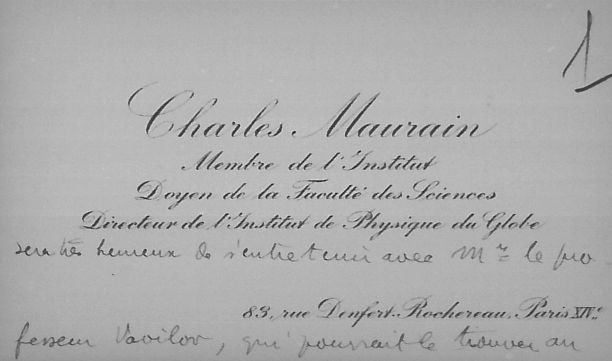 1
Charles Maurain
Membre de l'Institut
Doyen de la Faculté des Sciences
Directeur de l'Institut de Physique du Globe
sera très heureux de s'entretenir avec Mr le pro-
83, rue Denfert-Rochereau, Paris XIVe
fesseur Vavilov, qui pourrait le trouver au